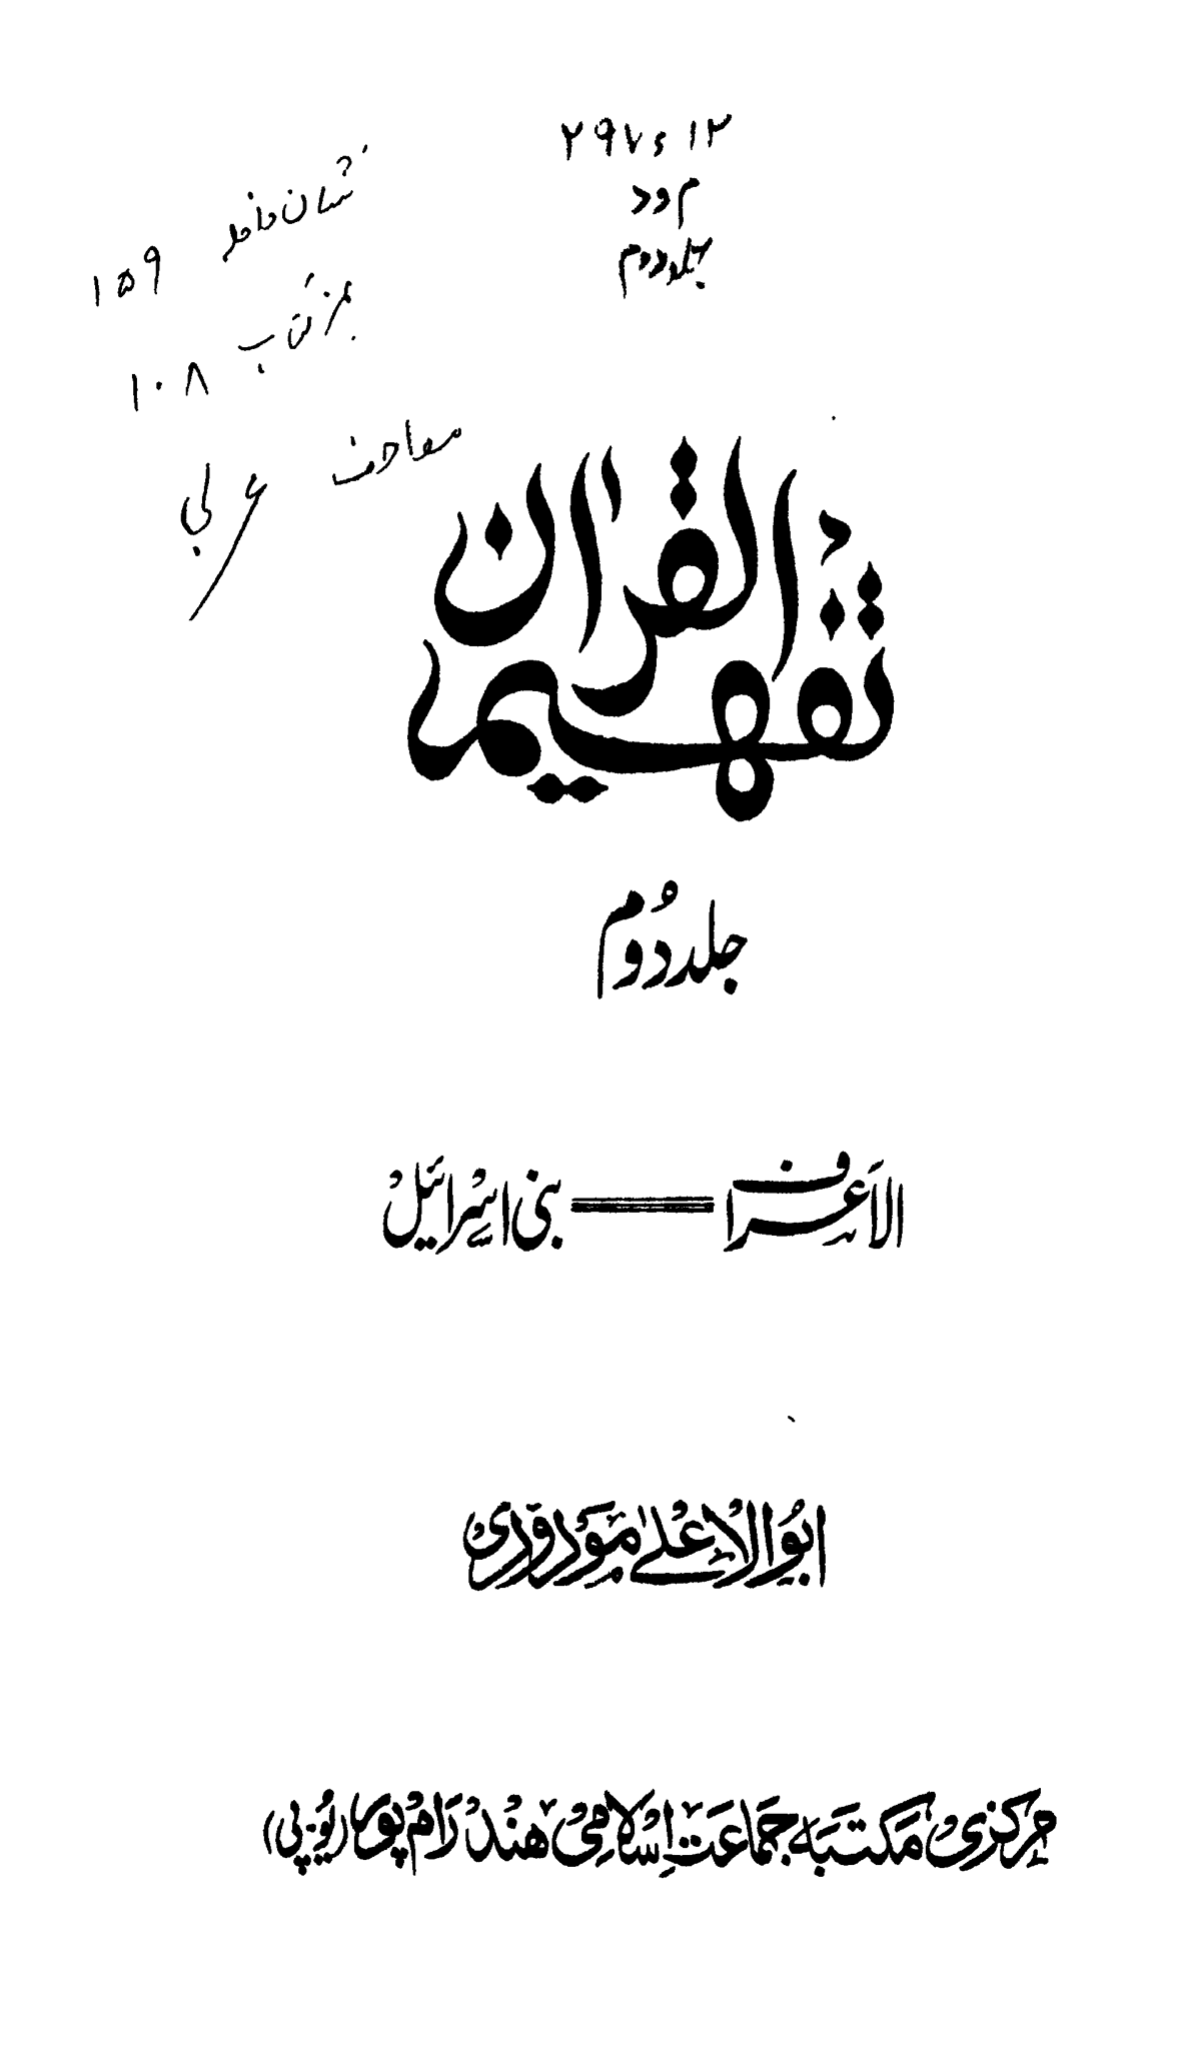 ۲۹۷ء۱۲
م ود
جلد دوم
نشان ۱۵۹
نمبر کتاب ۱۰۸
عربی
تفہیم القرآن
جلد دُوم
الاَعراف بنی اسْرائیلْ
ابُوالاْعْلےٰ مَوْدُوْدِیْ
مرکزیْ مَکتبَہ جَمَاعَتِ اِسْلَامِیْ هِنْدْ رَامْ پُور (یُو۔پی)